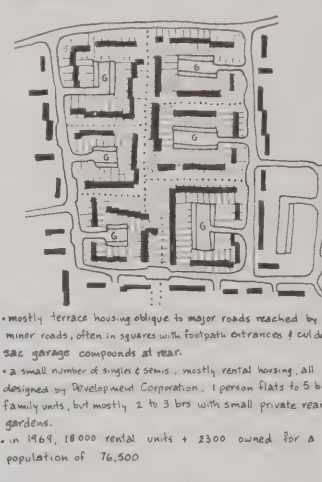 G
G
G
G
G
G
• mostly terrace housing oblique to major roads reached by
minor roads, often in squares with footpath entrances & cul de
sac garage compounds at rear.
• a small number of singles & semis, mostly rental housing, all
designed by Development Corporation. 1 person flats to 5 b
family units, but mostly 2 to 3 brs with small private rear
gardens.
• in 1969, 18 000 rental units + 2300 owned for a
population of 76,500